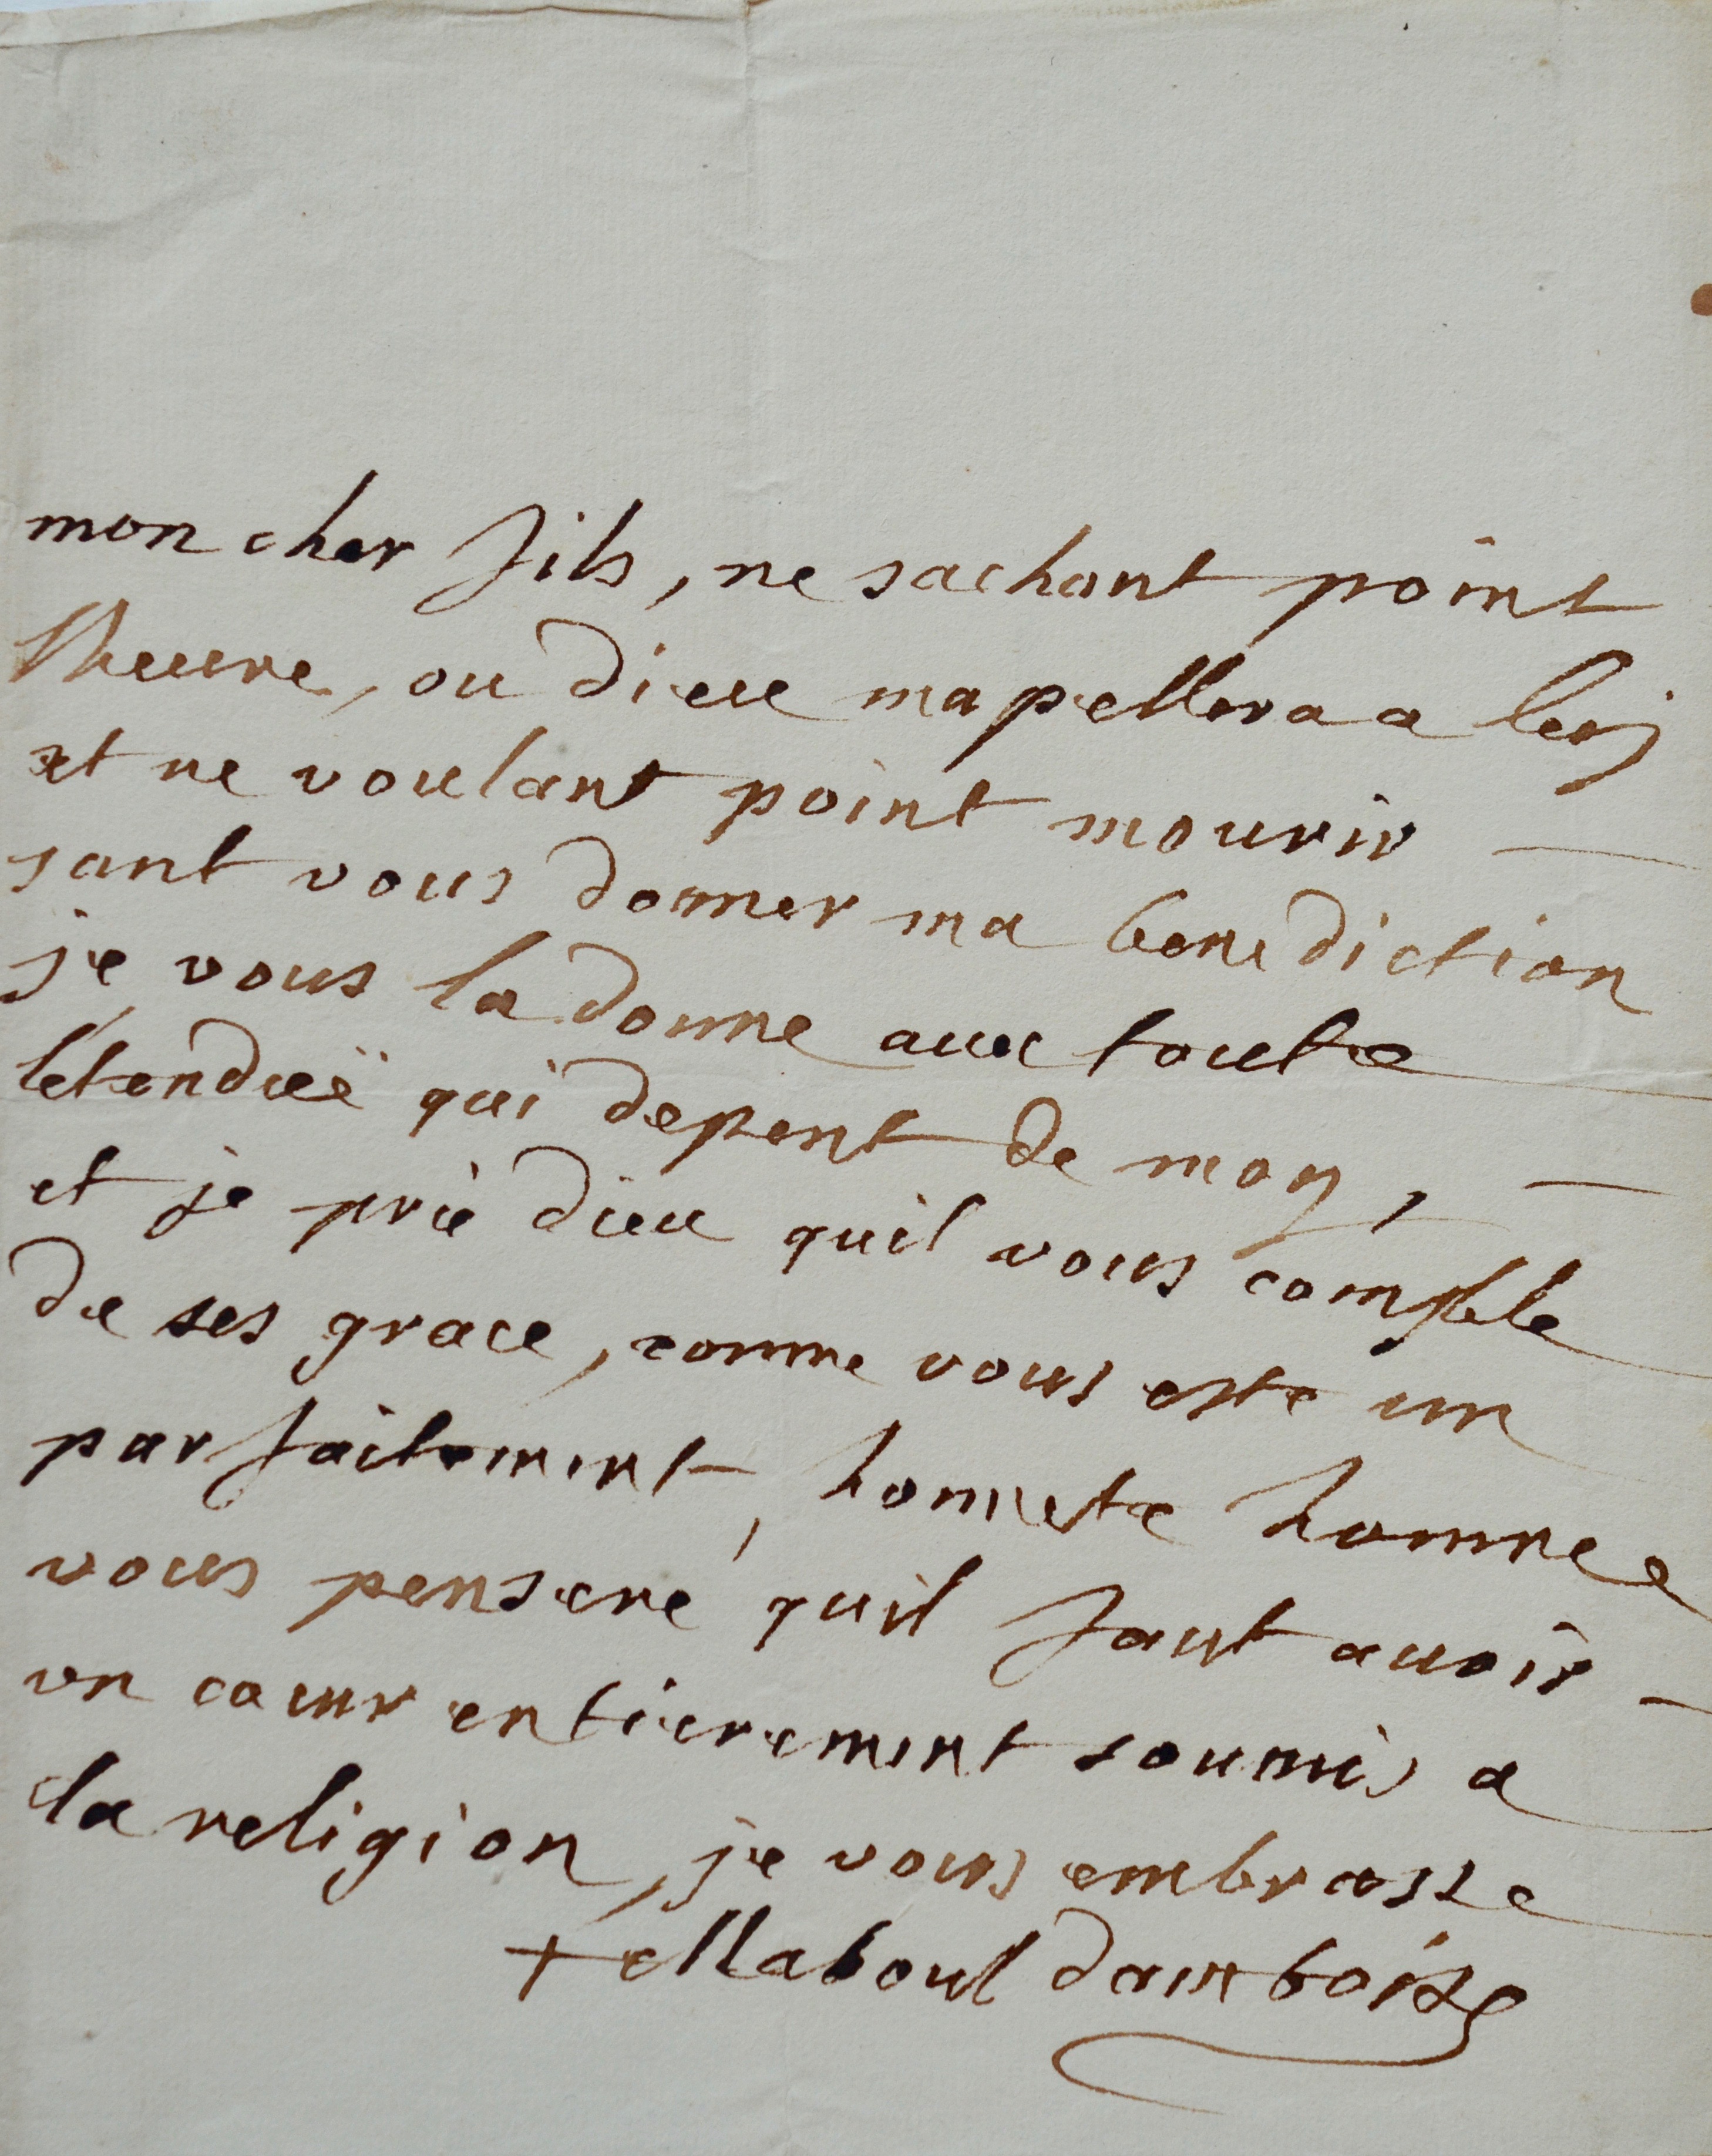 mon cher fils, ne sachant point
lheure, ou dieu mapellera a luy
et ne voulant point mourir
sant vous donner ma benediction
je vous la donne avec toute
létendüe qui depent de moy,
et je prie dieu quil vous comple
de ses grace, comme vous este un
parfaitement, honnete homme
vous penseré quil faut avoir
un cœur entierement soumis a
la religion, je vous embrasse
damboise